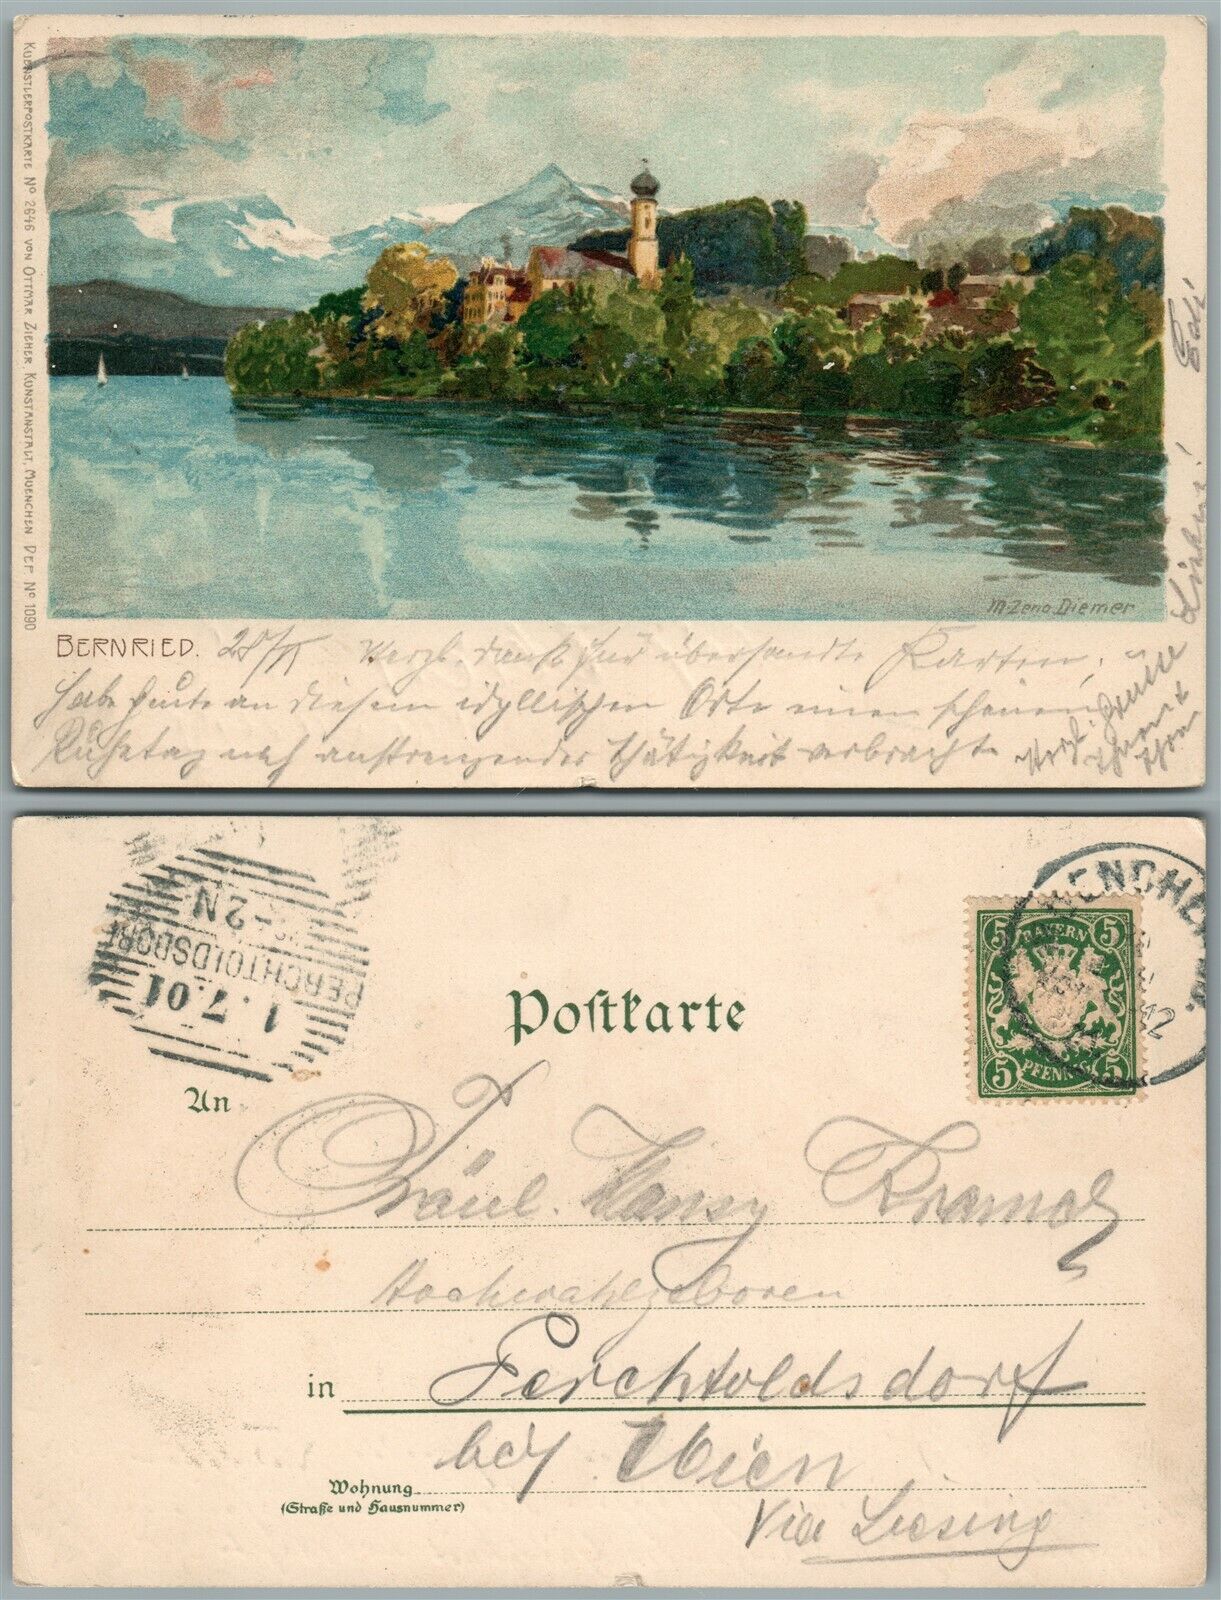 KUENSTLERPOSTKARTE Nº 2646 VON OTTMAR ZIEHER, KUNSTANSTALT, MUENCHEN DEP. Nº 1090
M. Zeno Diemer
BERNRIED. 28/VI Herzl. Dank für übersandte Karten,
habe heute an diesem idyllischen Orte einen schönen
Ruhetag nach anstrengender Thätigkeit verbracht
Herzl. Grüsse
Ihnen
PERCHTOLDSDORF
1.7.01
-2N
MUENCHEN
BAYERN
5 5
5 5
PFENNIG
Postkarte
An
Fräul. Hansy
Hochwohlgeboren
in Perchtoldsdorf
bei Wien
Wohnung
(Straße und Hausnummer)
Via Liesing